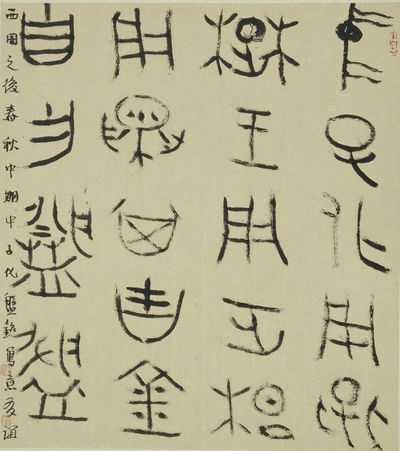 中子化用保
楚王用正梠
用擇其吉金
自乍盥盤
西周之後春秋中期中子化盤銘寫意